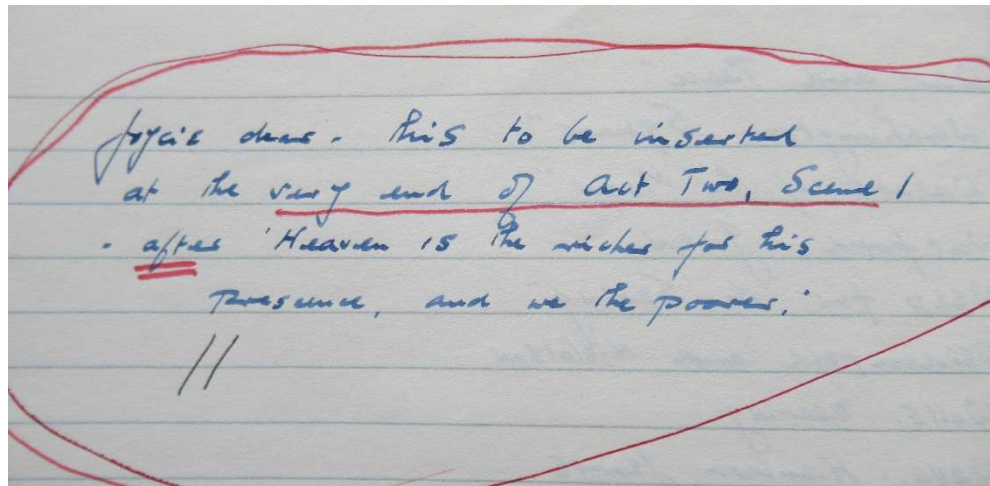 Joycie dear - this to be inserted
at the very end of Act Two, Scene 1
- after 'Heaven is the richer for his
presence, and we the poorer.'
//